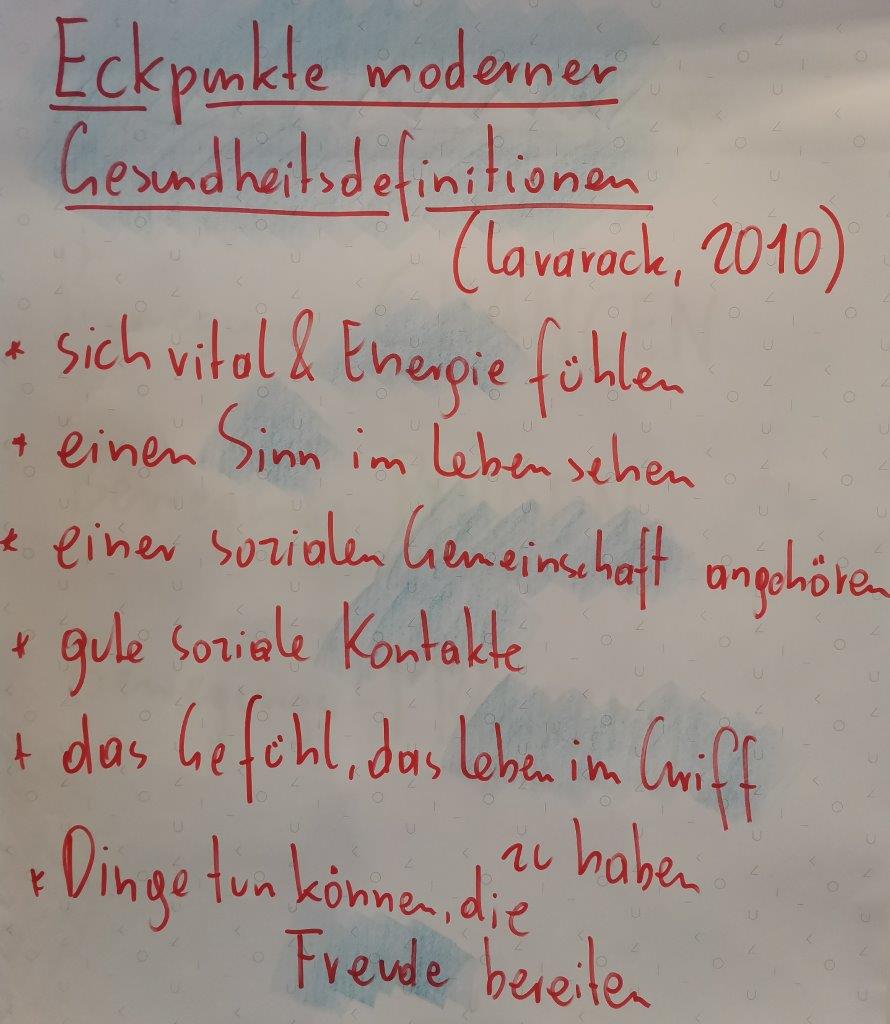 Eckpunkte moderner
Gesundheitsdefinitionen
(Lavarack, 2010)
* sich vital & Energie fühlen
* einen Sinn im Leben sehen
* einer sozialen Gemeinschaft angehören
* gute soziale Kontakte
* das Gefühl, das Leben im Griff
zu haben
* Dinge tun können, die
Freude bereiten